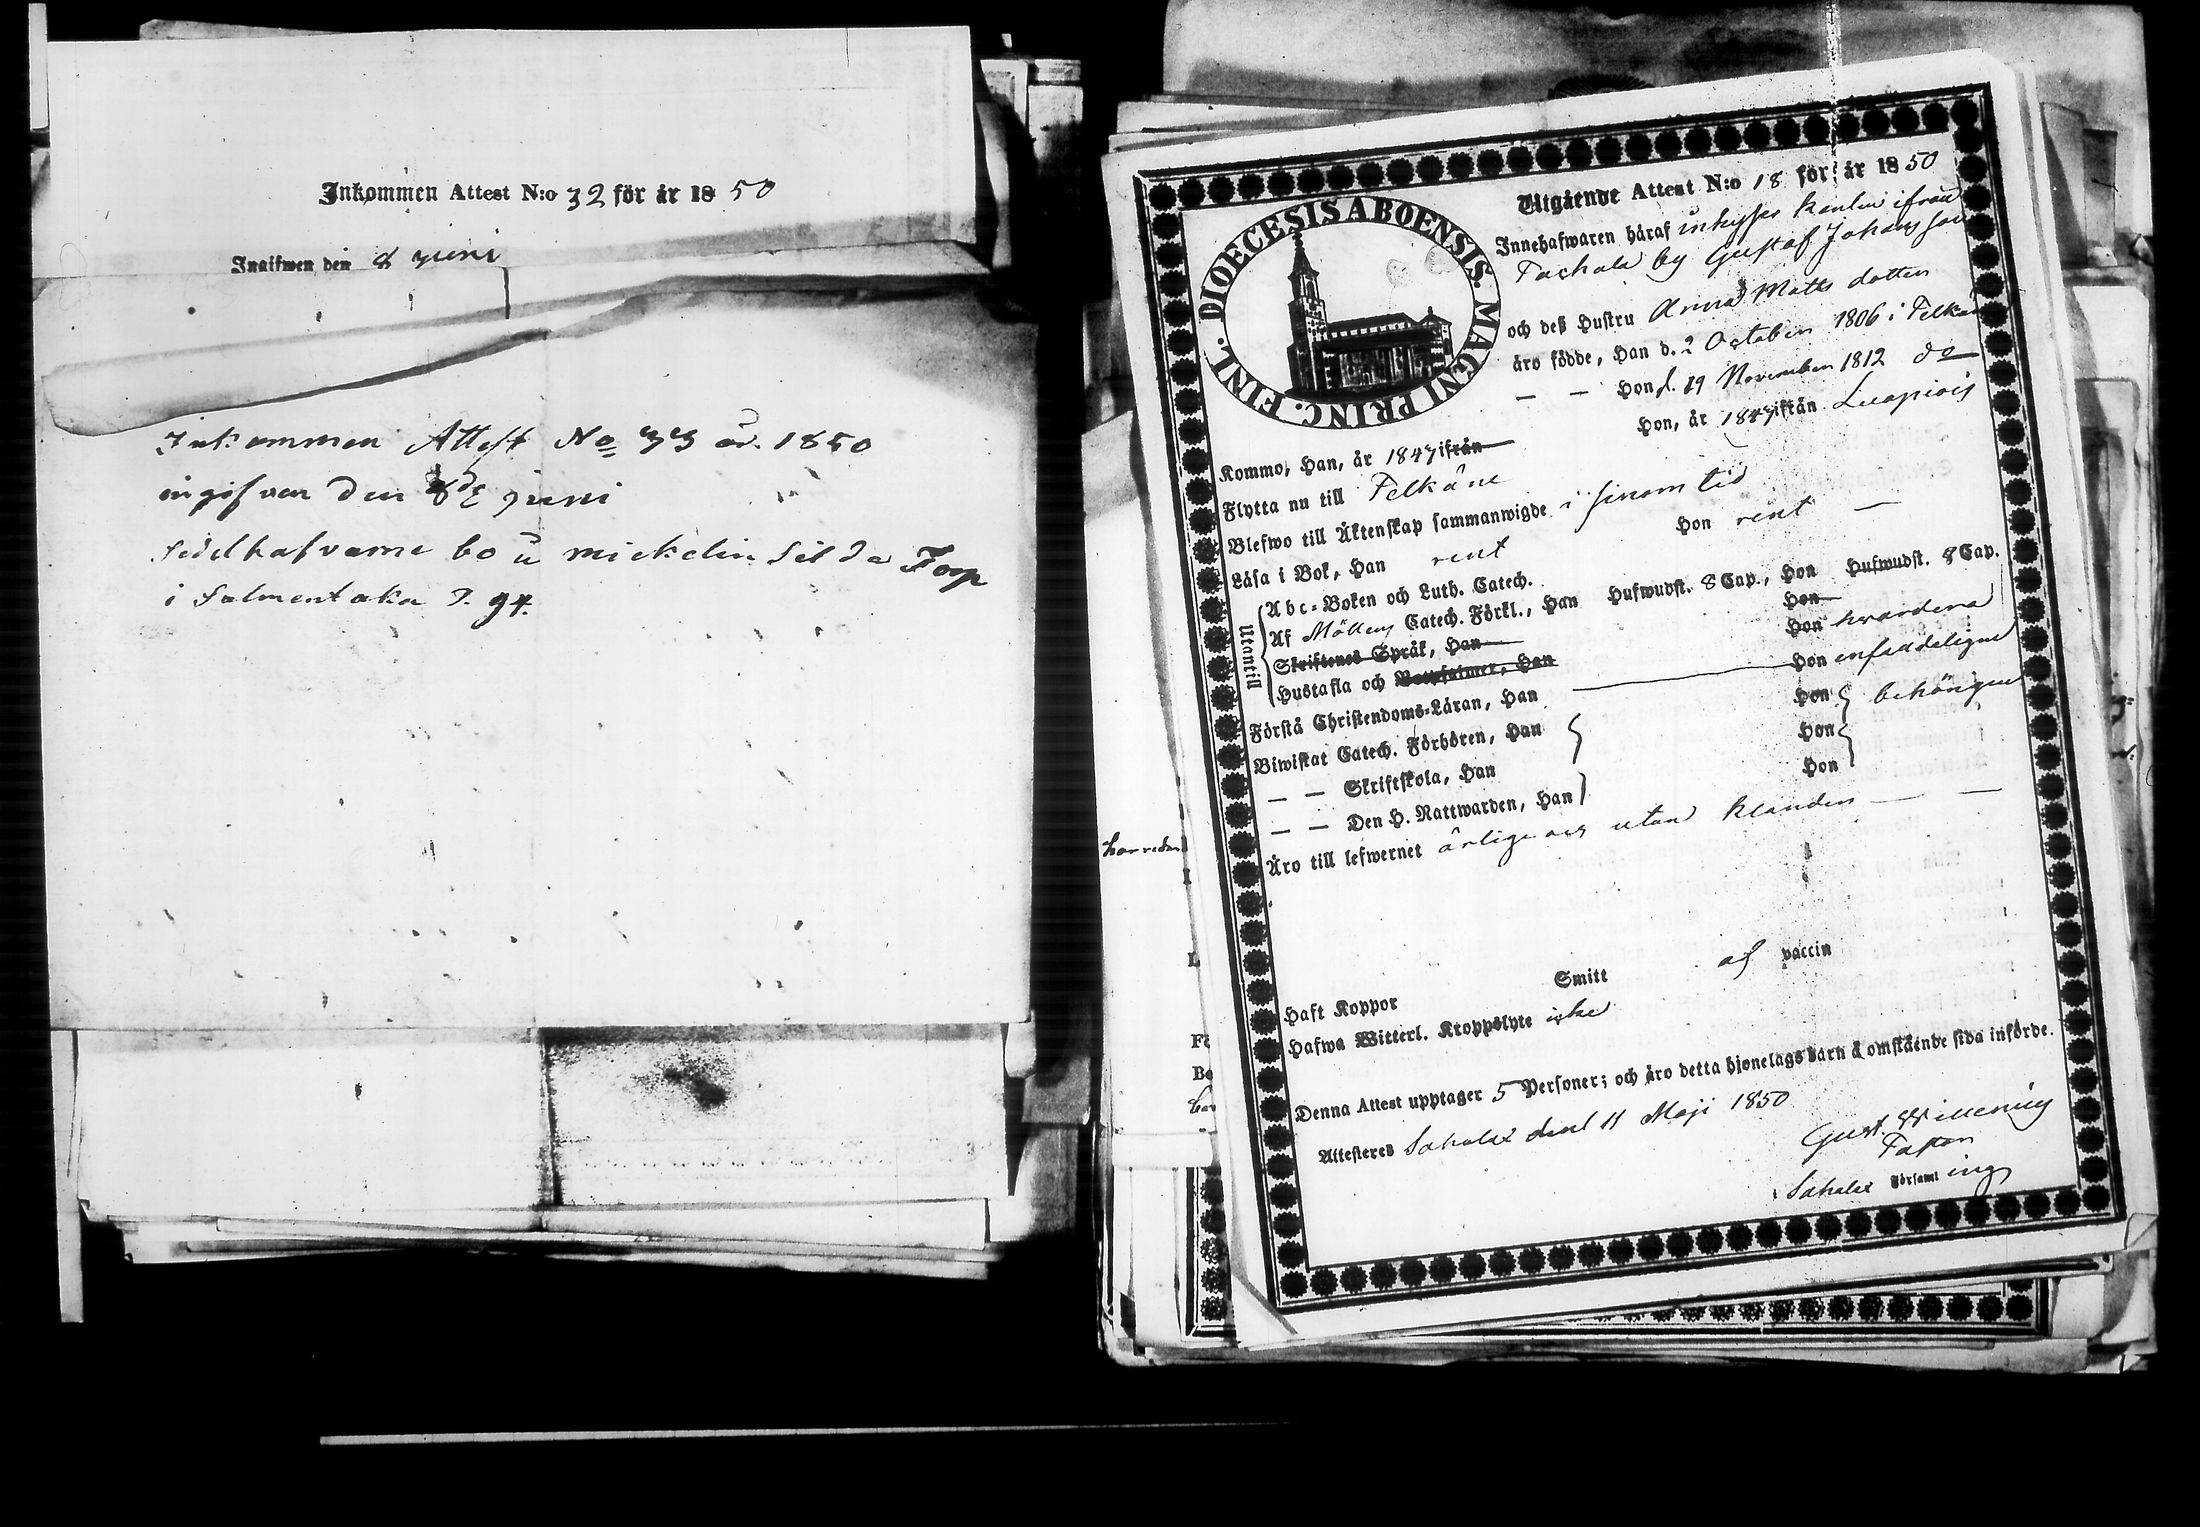 Inkommen Attest N:o 32 för år 1850
Ingifwen den 8 juni
Inkommen Attest No 33 år 1850
ingifvan den 8de juni
Sedelhafvarne bo u mickelin Silda Torp
i Salmentaka P. 94.
DIOECESIS ABOENSIS. MAGNI PRINC. FINL.
Utgående Attest N:o 18 för år 1850
Innehafwaren häraf inhyses karlen ifrån
Tackala by Gustaf Johansson
och deß Hustru Anna Matts dotter
äro födde, Han d. 2 October 1806 i Felkäne
— — Hon d. 19 November 1812 do
Kommo, Han, år 1847 ifrån Hon, år 1847 ifrån Luopiois
Flytta nu till Felkäne
Blefwo till Äktenskap sammanwigde i sinom tid
Läsa i Bok, Han rent Hon rent —
Utantill
Abc-Boken och Luth. Catech.
Af Möllers Catech. Förkl., Han Hufwudst. 8 Cap., Hon Hufwudst. 8 Cap.
Skriftenes Språk, Han Hon
Hustafla och Botpsalmer, Han Hon hvardera
Förstå Christendoms-Läran, Han Hon enfaldeligen
Biwistat Catech. Förhören, Han Hon behörigen
— — Skriftskola, Han Hon
— — Den H. Nattwarden, Han Hon
Äro till lefwernet ärlige och utan klander — —
Haft Koppor Smitt af vaccin
Hafwa Witterl. Kroppslyte icke
Denna Attest upptager 5 Personer; och äro detta hjonelags barn å omstående sida införde.
Attesteres Sahalax den 11 Maji 1850
Gust. Willenius
Pastor
Sahalax Församling